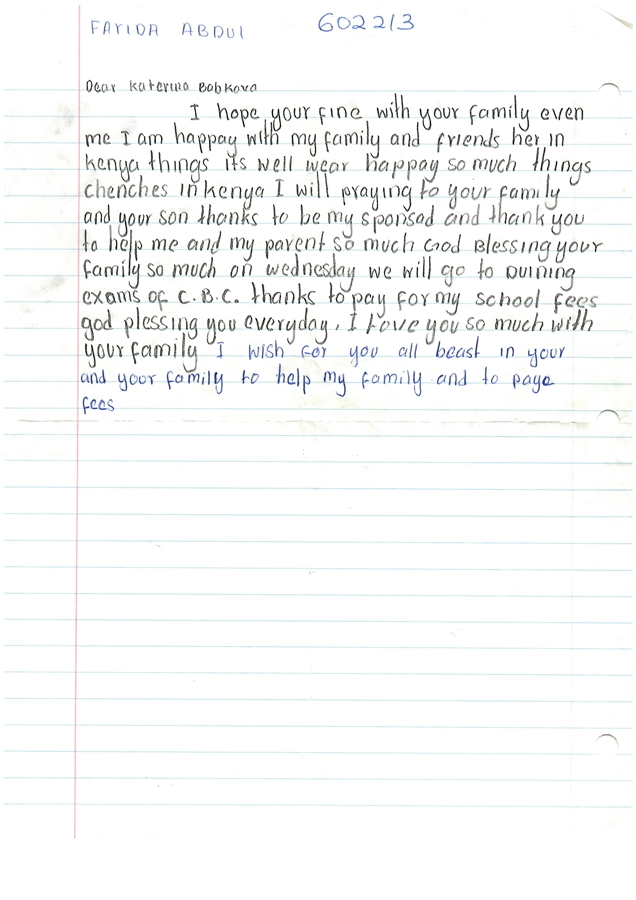 FARIDA ABDUL 602213
Dear Katerina Bobkova
I hope your fine with your family even
me I am happay with my family and friends her in
kenya things its well wear happay so much things
chenches in kenya I will praying to your family
and your son thanks to be my sponsad and thank you
to help me and my parent so much God Blessing your
family so much on wednesday we will go to Duining
exams of C.B.C. thanks to pay for my school fees
god plessing you everyday, I love you so much with
your family I wish for you all beast in your
and your family to help my family and to paye
fees